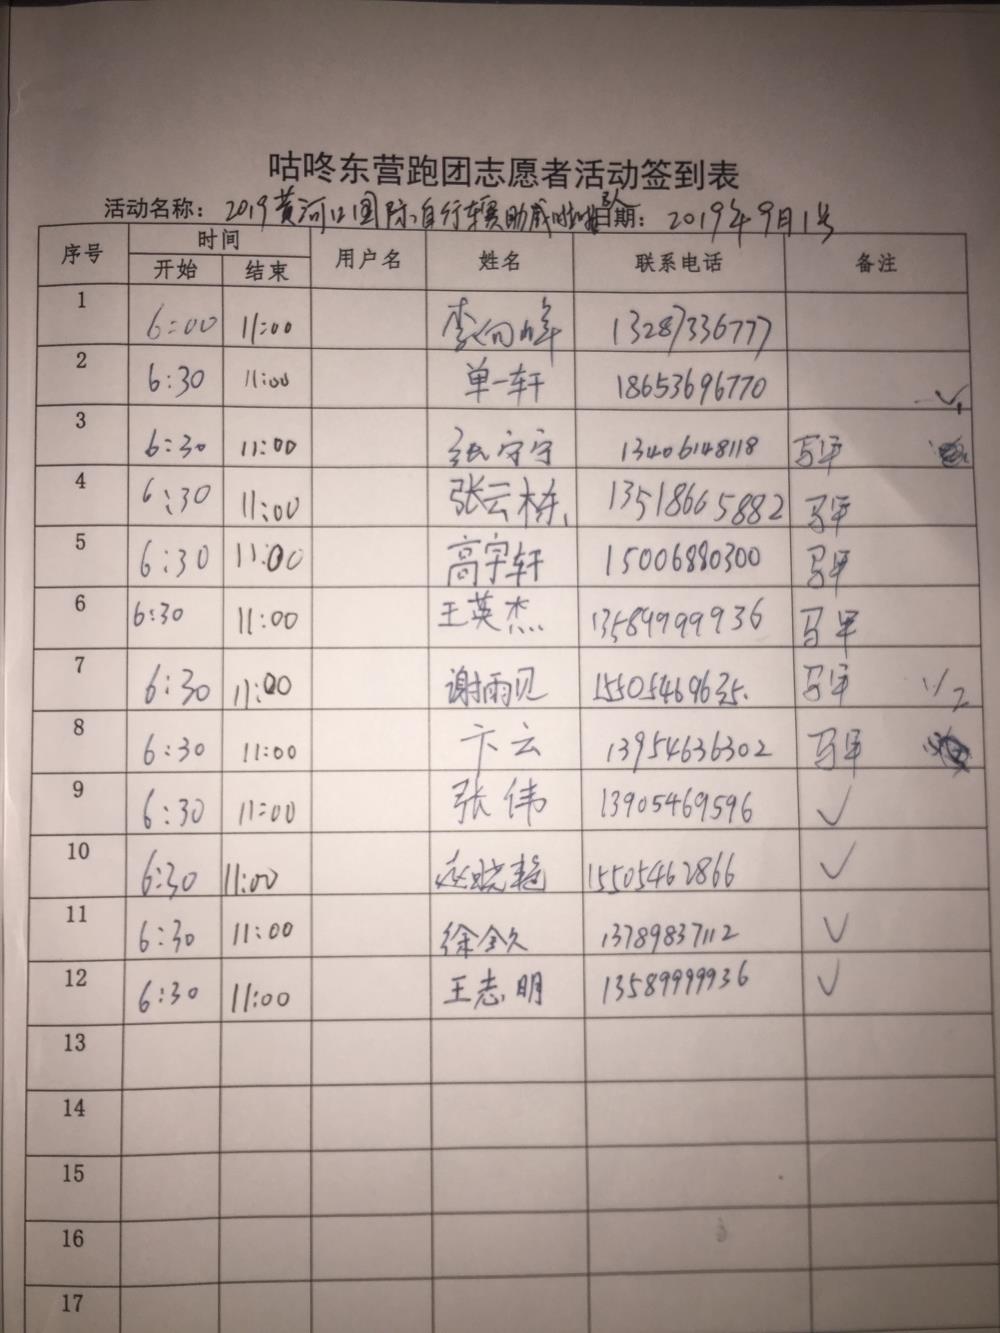 咕咚东营跑团志愿者活动签到表
活动名称: 2019黄河口国际自行车赛助威啦啦队 日期: 2019年9月1号
序号 时间 用户名 姓名 联系电话 备注
开始 结束
1 6:00 11:00 李向峰 13287336777
2 6:30 11:00 单一轩 18653696770
3 6:30 11:00 张守宇 13406148118 马甲
4 6:30 11:00 张云栋 13518665882 马甲
5 6:30 11:00 高宇轩 15006880300 马甲
6 6:30 11:00 王英杰 13589999936 马甲
7 6:30 11:00 谢雨见 15505469635. 马甲
8 6:30 11:00 卞云 13954636302 马甲
9 6:30 11:00 张伟 13905469596 ✓
10 6:30 11:00 赵晓艳 15505462866 ✓
11 6:30 11:00 徐金久 13789837112 ✓
12 6:30 11:00 王志明 13589999936 ✓
13
14
15
16
17